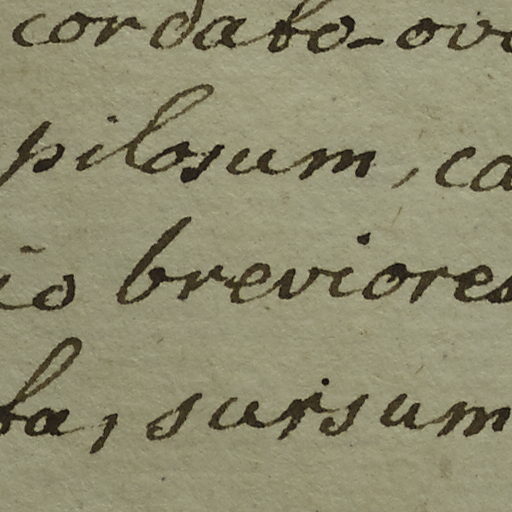 cordato-ov
pilosum, ca
io breviores
ta, sursum